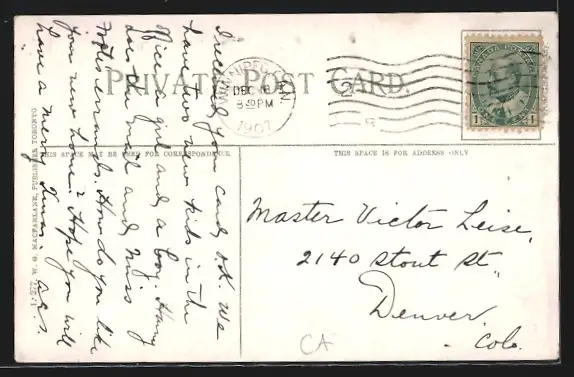 PRIVATE POST CARD.
WINNIPEG, MAN.
DEC 18
8 30 PM
1907
CANADA POSTAGE
1 1
THIS SPACE MAY BE USED FOR CORRESPONDENCE
THIS SPACE IS FOR ADDRESS ONLY
I received your card, O.K. We
have two new kids in the
office, a girl and a boy. Harry
does the mail and Miss
errands. How do you like
your new home? Hope you will
have a merry Xmas.
Master Victor Leise,
2140 Stout St.,
Denver,
Colo.
CA
W. G. MACFARLANE, PUBLISHER, TORONTO